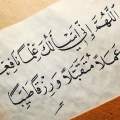 اللهم إني أسألك علما نافعا
وعملا متقبلا ورزقا طيبا